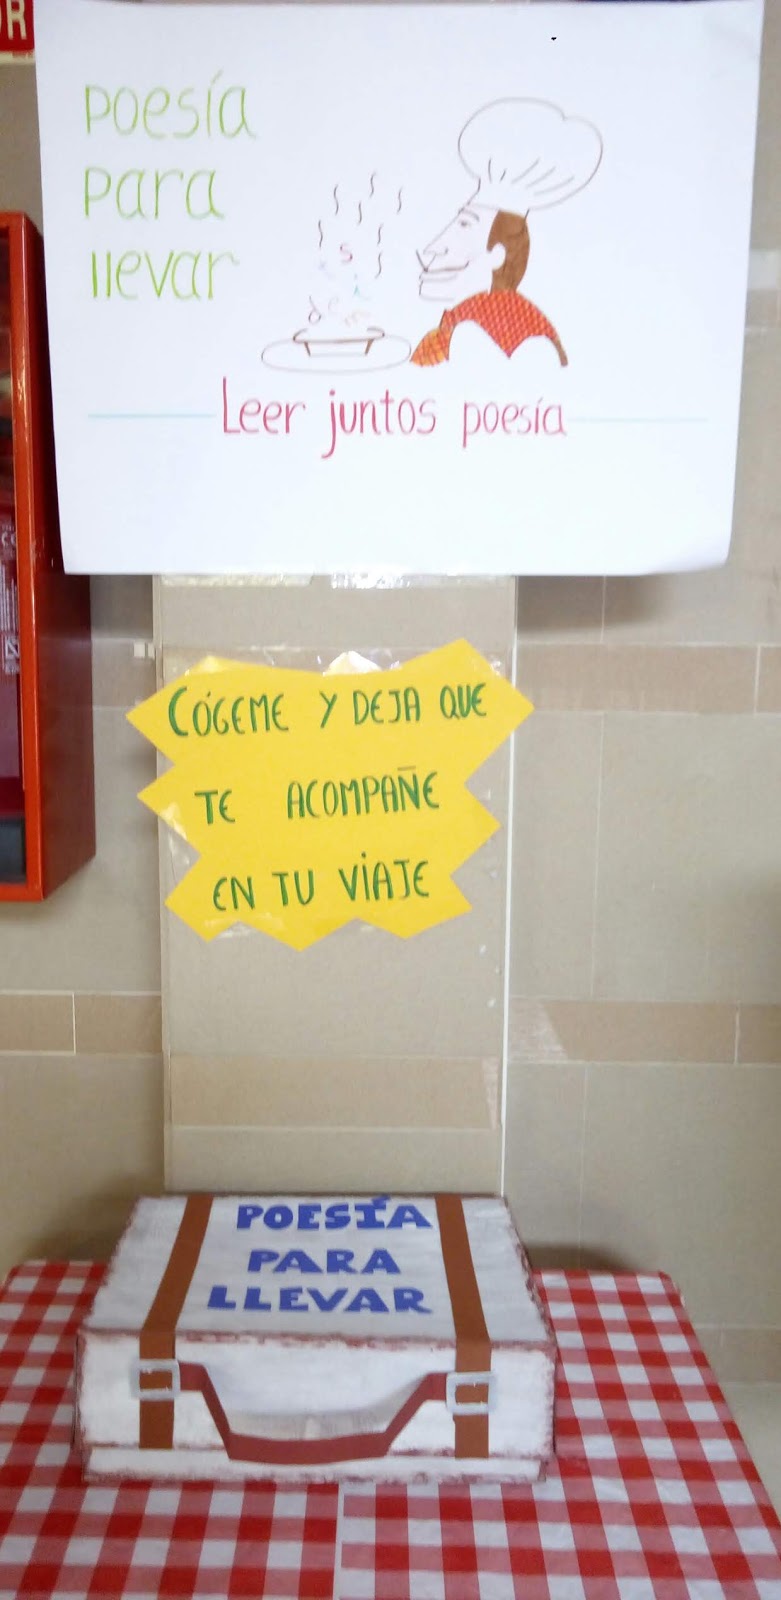 OR
Poesía
para
llevar
Leer juntos poesía
CÓGEME Y DEJA QUE
TE ACOMPAÑE
EN TU VIAJE
POESÍA
PARA
LLEVAR